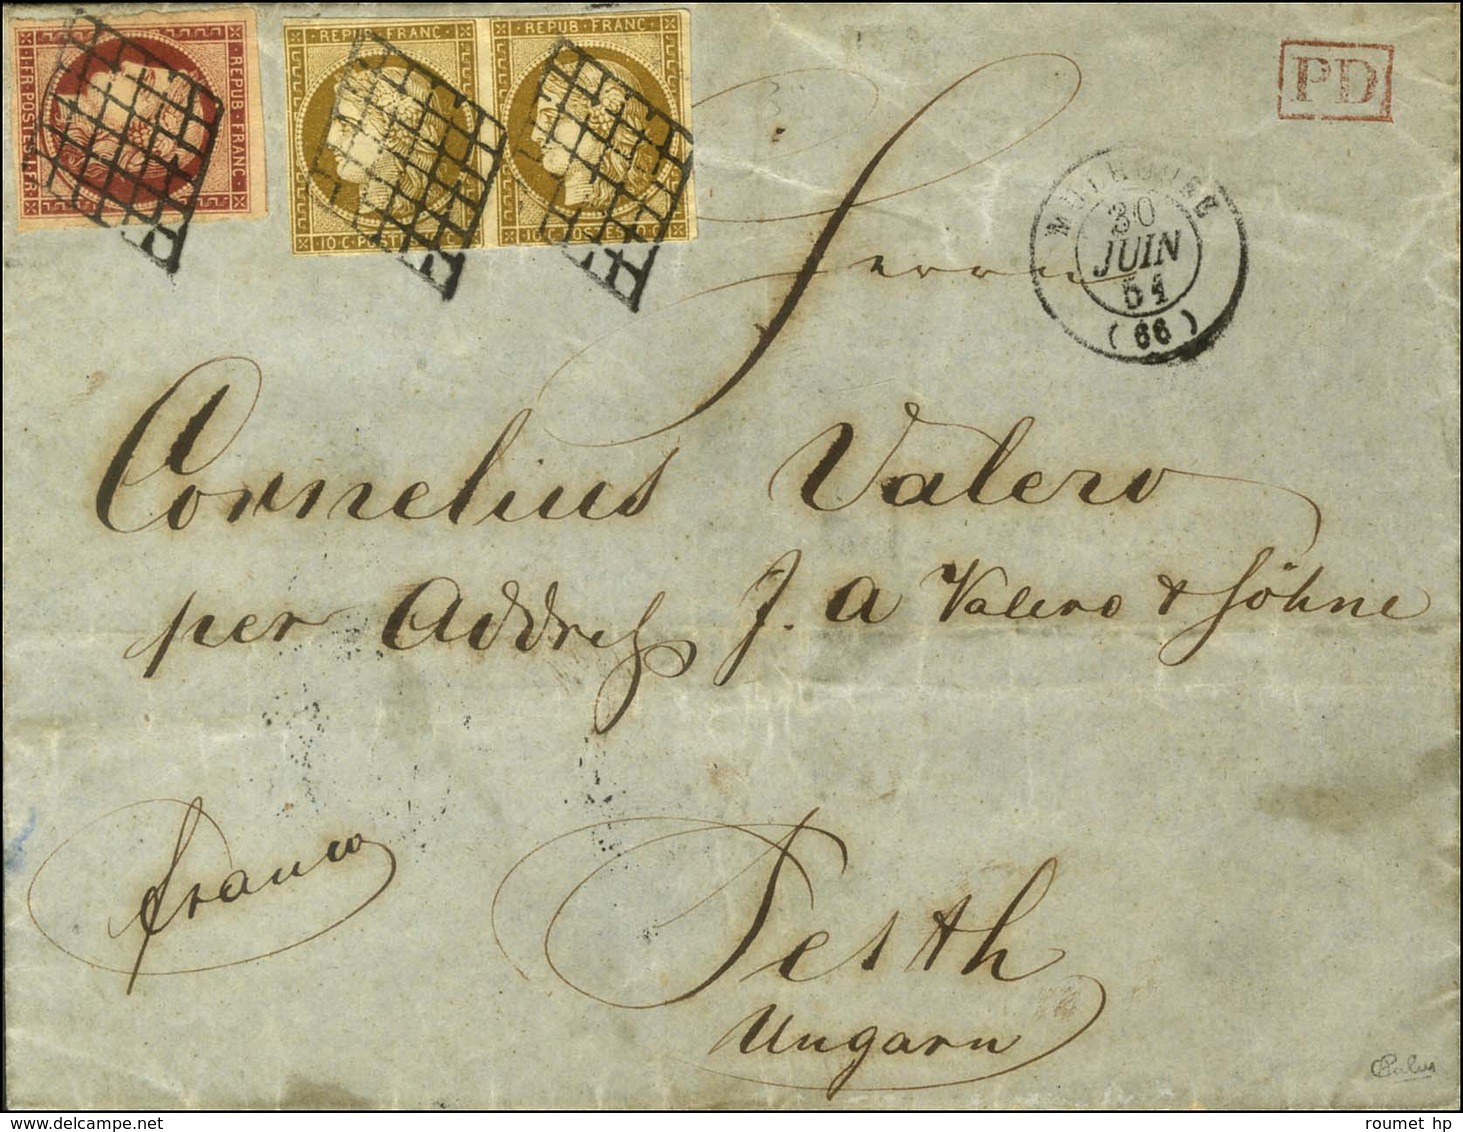 REPUB. FRANC.
REPUB. FRANC.
REPUB. FRANC.
1.FR.POSTES.1.FR.
10.C.POSTES.10.C.
10.C.POSTES.10.C.
PD
MULHOUSE
30
JUIN
51
(66)
Herrn
Cornelius Valero
per Addreß J. A Valero & Söhne
franco
Pesth
Ungarn
Calves
roumet hp